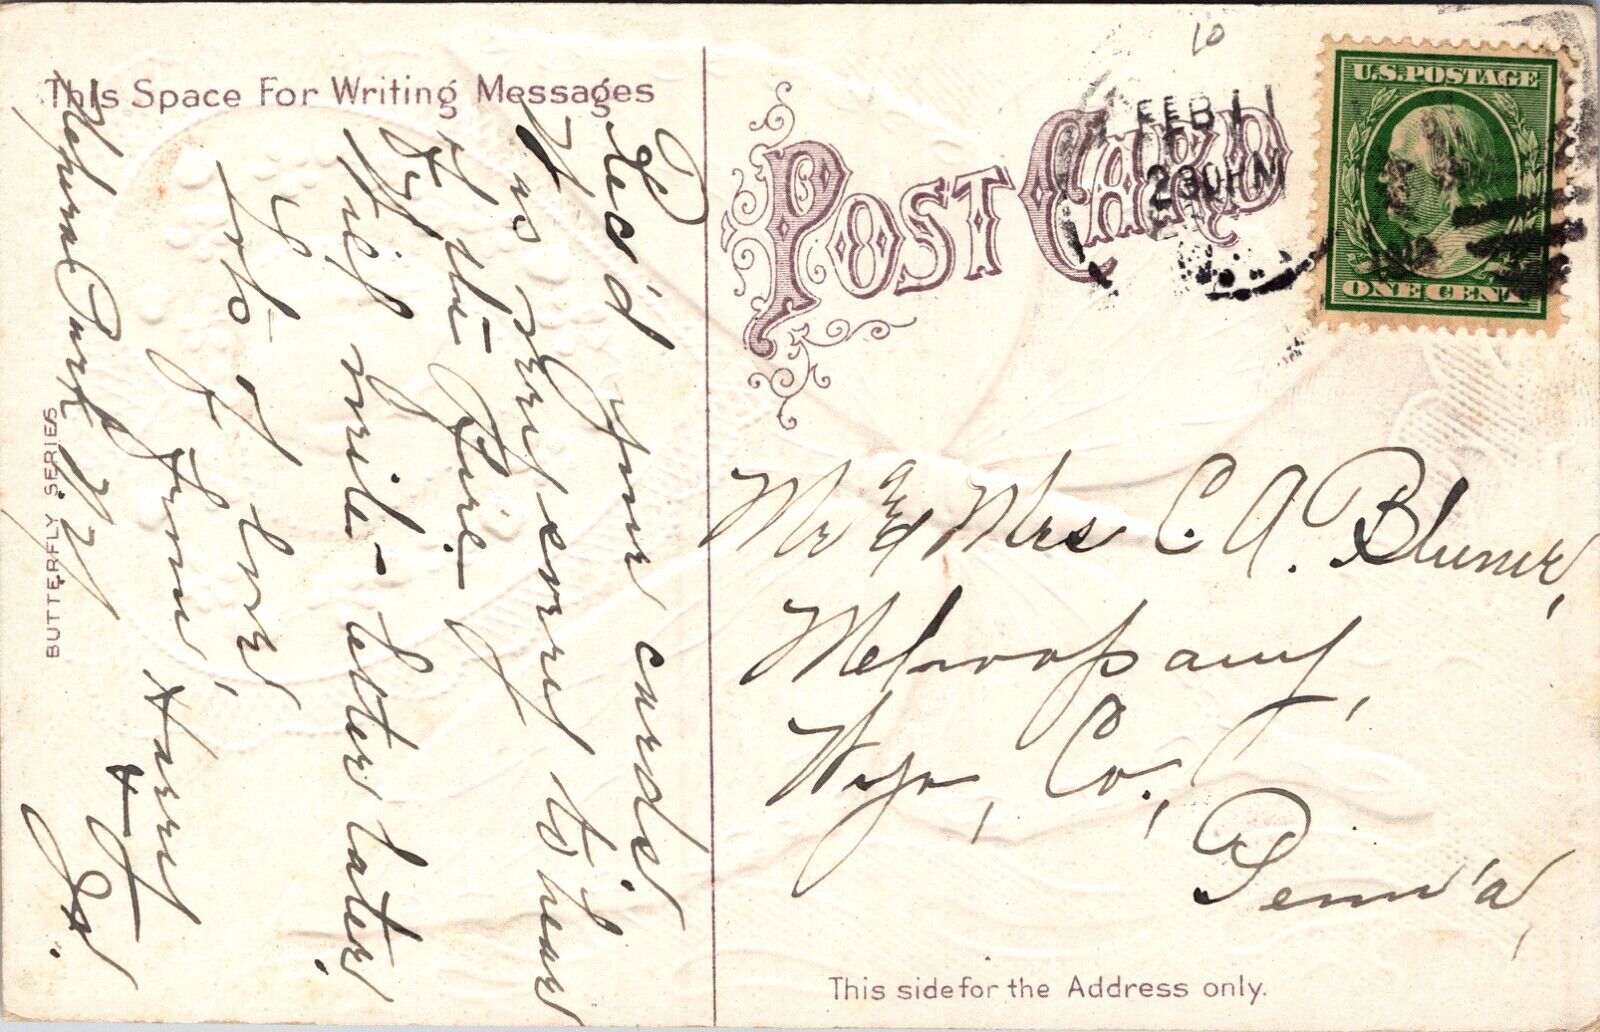 This Space For Writing Messages
Rec'd your cards
& was very sorry to hear
of the fire.
Will write - letter later.
Lots of love
from, Harry
Neptune Park N.Y.
BUTTERFLY SERIES
10
POST CARD
FEB 11
2 30 PM
U.S. POSTAGE
ONE CENT
Mr & Mrs C. A. Blume,
Mehoopany,
Wyo, Co.,
Penn'a,
This side for the Address only.